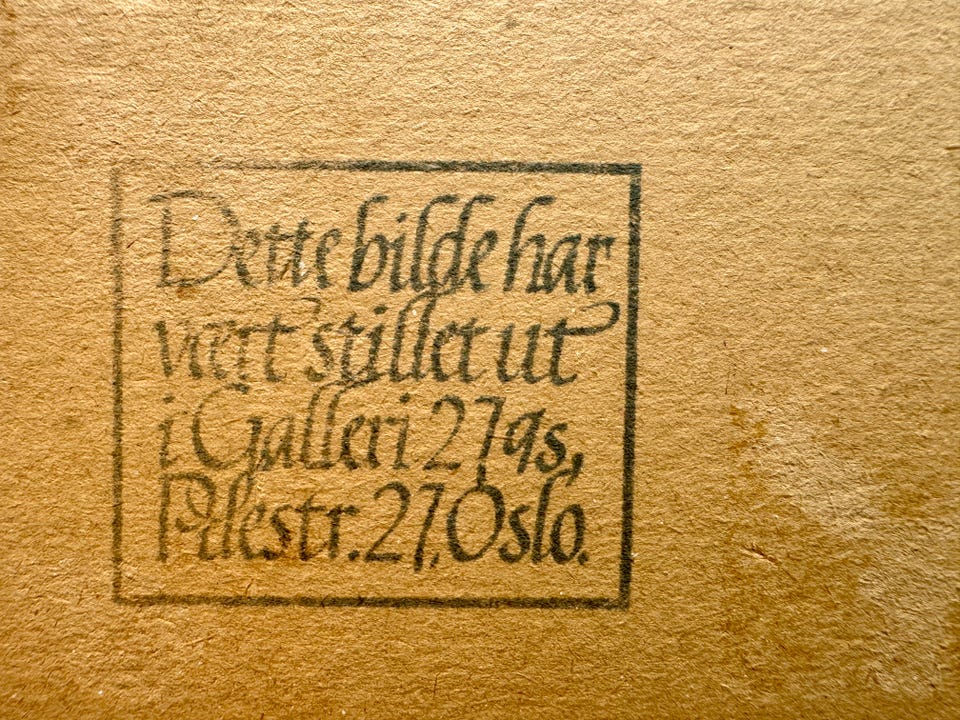 Dette bilde har
vært stillet ut
i Galleri 27 as,
Pilestr. 27, Oslo.